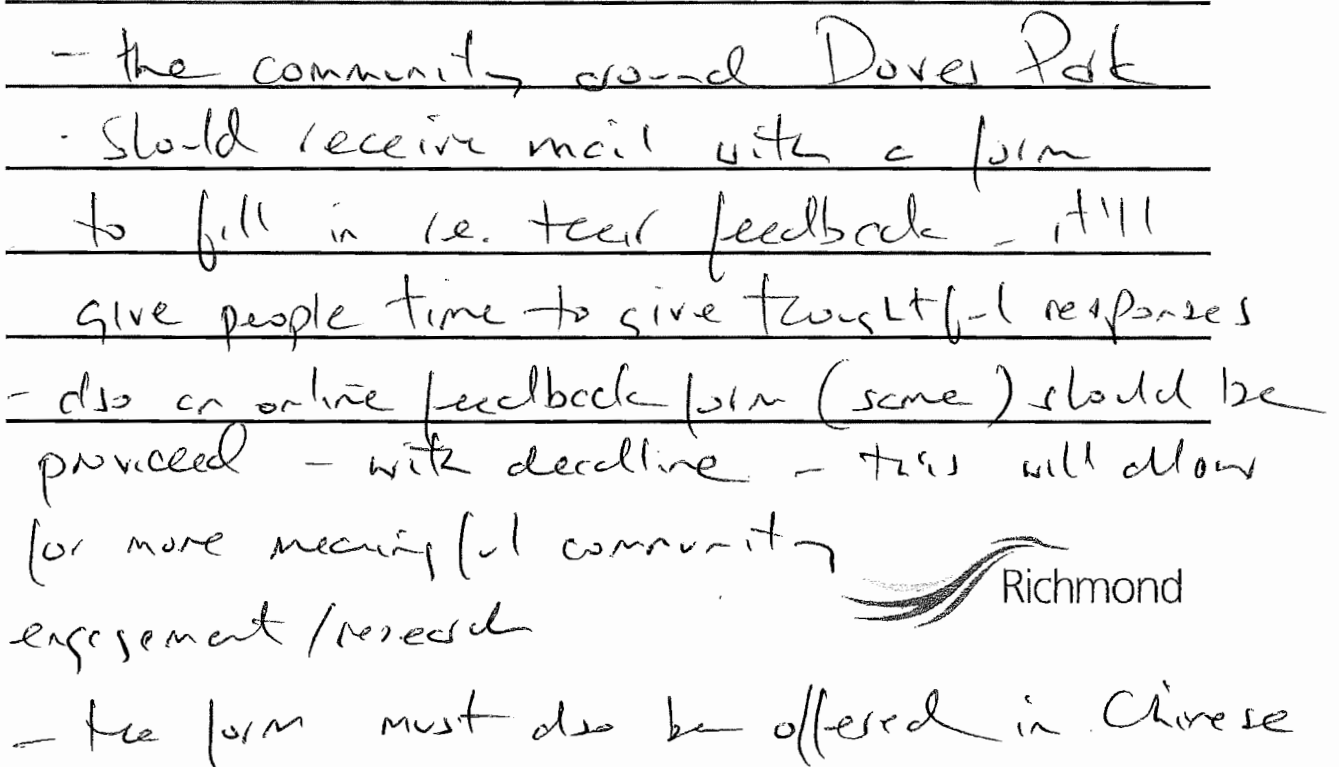 - the community around Dover Park
· should receive mail with a form
to fill in i.e. their feedback - it'll
give people time to give thoughtful responses
- also an online feedback form (same) should be
provided - with deadline - this will allow
for more meaningful community
Richmond
engagement/research
- the form must also be offered in Chinese